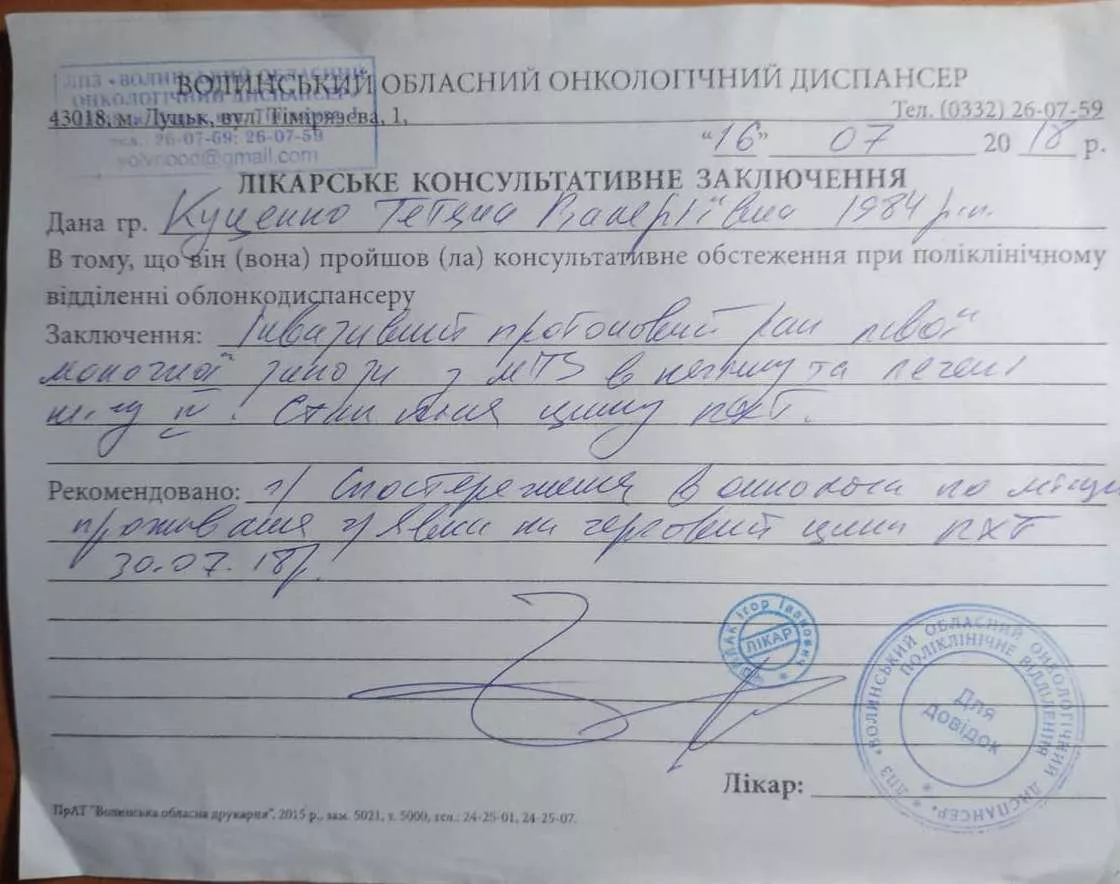 ЛПЗ «ВОЛИНСЬКИЙ ОБЛАСНИЙ
ОНКОЛОГІЧНИЙ ДИСПАНСЕР»
тел.: 26-07-69; 26-07-59
@gmail.com
ВОЛИНСЬКИЙ ОБЛАСНИЙ ОНКОЛОГІЧНИЙ ДИСПАНСЕР
43018, м. Луцьк, вул. Тімірязєва, 1, Тел. (0332) 26-07-59
“16” 07 2018 р.
ЛІКАРСЬКЕ КОНСУЛЬТАТИВНЕ ЗАКЛЮЧЕННЯ
Дана гр. Куценко Тетяна Валеріївна 1984 р.н.
В тому, що він (вона) пройшов (ла) консультативне обстеження при поліклінічному
відділенні облонкодиспансеру
Заключення: Інвазивний протоковий рак лівої
молочної залози з МТS в легені та печені
ст. IV. Стан після циклу ПХТ.
Рекомендовано: 1) Спостереження в онколога по місцю
проживання 2) Явка на черговий цикл ПХТ
30.07.18р.
Ігор Іванович
ЛІКАР
ЛПЗ «ВОЛИНСЬКИЙ ОБЛАСНИЙ ОНКОЛОГІЧНИЙ ДИСПАНСЕР»
ПОЛІКЛІНІЧНЕ ВІДДІЛЕННЯ
Для
довідок
Лікар:
ПрАТ "Волинська обласна друкарня". 2015 р., зам. 5021, т. 5000, тел.: 24-25-01, 24-25-07.